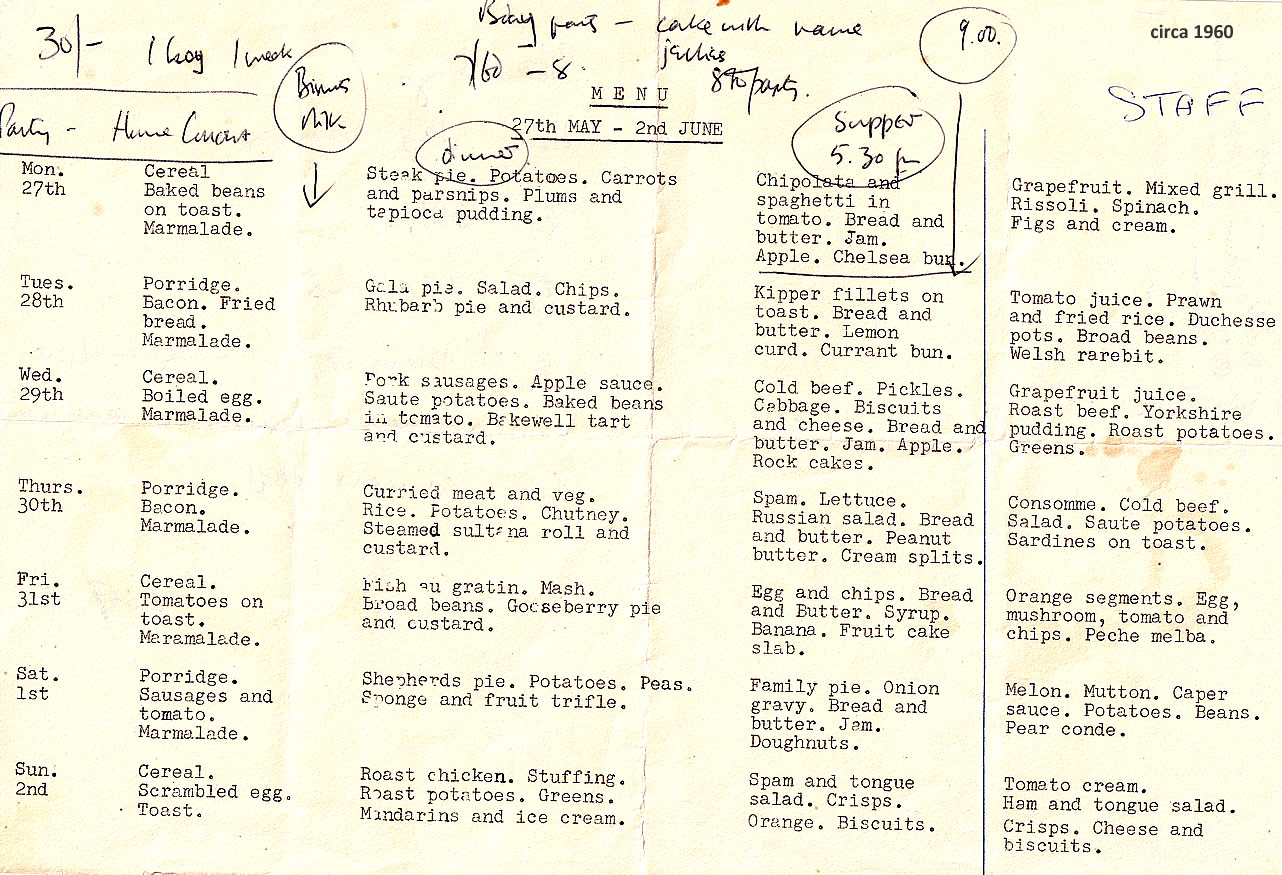 30/-
1 boy 1 week
Party - Home Concert
milk
party - cake with name
jellies
7/60 - 8.
9.00.
circa 1960
STAFF
MENU
27th MAY - 2nd JUNE
dinner
Supper
5.30 pm
Mon.
27th
Cereal
Baked beans
on toast.
Marmalade.
Steak pie. Potatoes. Carrots
and parsnips. Plums and
tapioca pudding.
Chipolata and
spaghetti in
tomato. Bread and
butter. Jam.
Apple. Chelsea bun.
Grapefruit. Mixed grill.
Rissoli. Spinach.
Figs and cream.
Tues.
28th
Porridge.
Bacon. Fried
bread.
Marmalade.
Gala pie. Salad. Chips.
Rhubarb pie and custard.
Kipper fillets on
toast. Bread and
butter. Lemon
curd. Currant bun.
Tomato juice. Prawn
and fried rice. Duchesse
pots. Broad beans.
Welsh rarebit.
Wed.
29th
Cereal.
Boiled egg.
Marmalade.
Pork sausages. Apple sauce.
Saute potatoes. Baked beans
in tomato. Bakewell tart
and custard.
Cold beef. Pickles.
Cabbage. Biscuits
and cheese. Bread and
butter. Jam. Apple.
Rock cakes.
Grapefruit juice.
Roast beef. Yorkshire
pudding. Roast potatoes.
Greens.
Thurs.
30th
Porridge.
Bacon.
Marmalade.
Curried meat and veg.
Rice. Potatoes. Chutney.
Steamed sultana roll and
custard.
Spam. Lettuce.
Russian salad. Bread
and butter. Peanut
butter. Cream splits.
Consomme. Cold beef.
Salad. Saute potatoes.
Sardines on toast.
Fri.
31st
Cereal.
Tomatoes on
toast.
Maramalade.
Fish au gratin. Mash.
Broad beans. Gooseberry pie
and custard.
Egg and chips. Bread
and Butter. Syrup.
Banana. Fruit cake
slab.
Orange segments. Egg,
mushroom, tomato and
chips. Peche melba.
Sat.
1st
Porridge.
Sausages and
tomato.
Marmalade.
Shepherds pie. Potatoes. Peas.
Sponge and fruit trifle.
Family pie. Onion
gravy. Bread and
butter. Jam.
Doughnuts.
Melon. Mutton. Caper
sauce. Potatoes. Beans.
Pear conde.
Sun.
2nd
Cereal.
Scrambled egg.
Toast.
Roast chicken. Stuffing.
Roast potatoes. Greens.
Mandarins and ice cream.
Spam and tongue
salad. Crisps.
Orange. Biscuits.
Tomato cream.
Ham and tongue salad.
Crisps. Cheese and
biscuits.